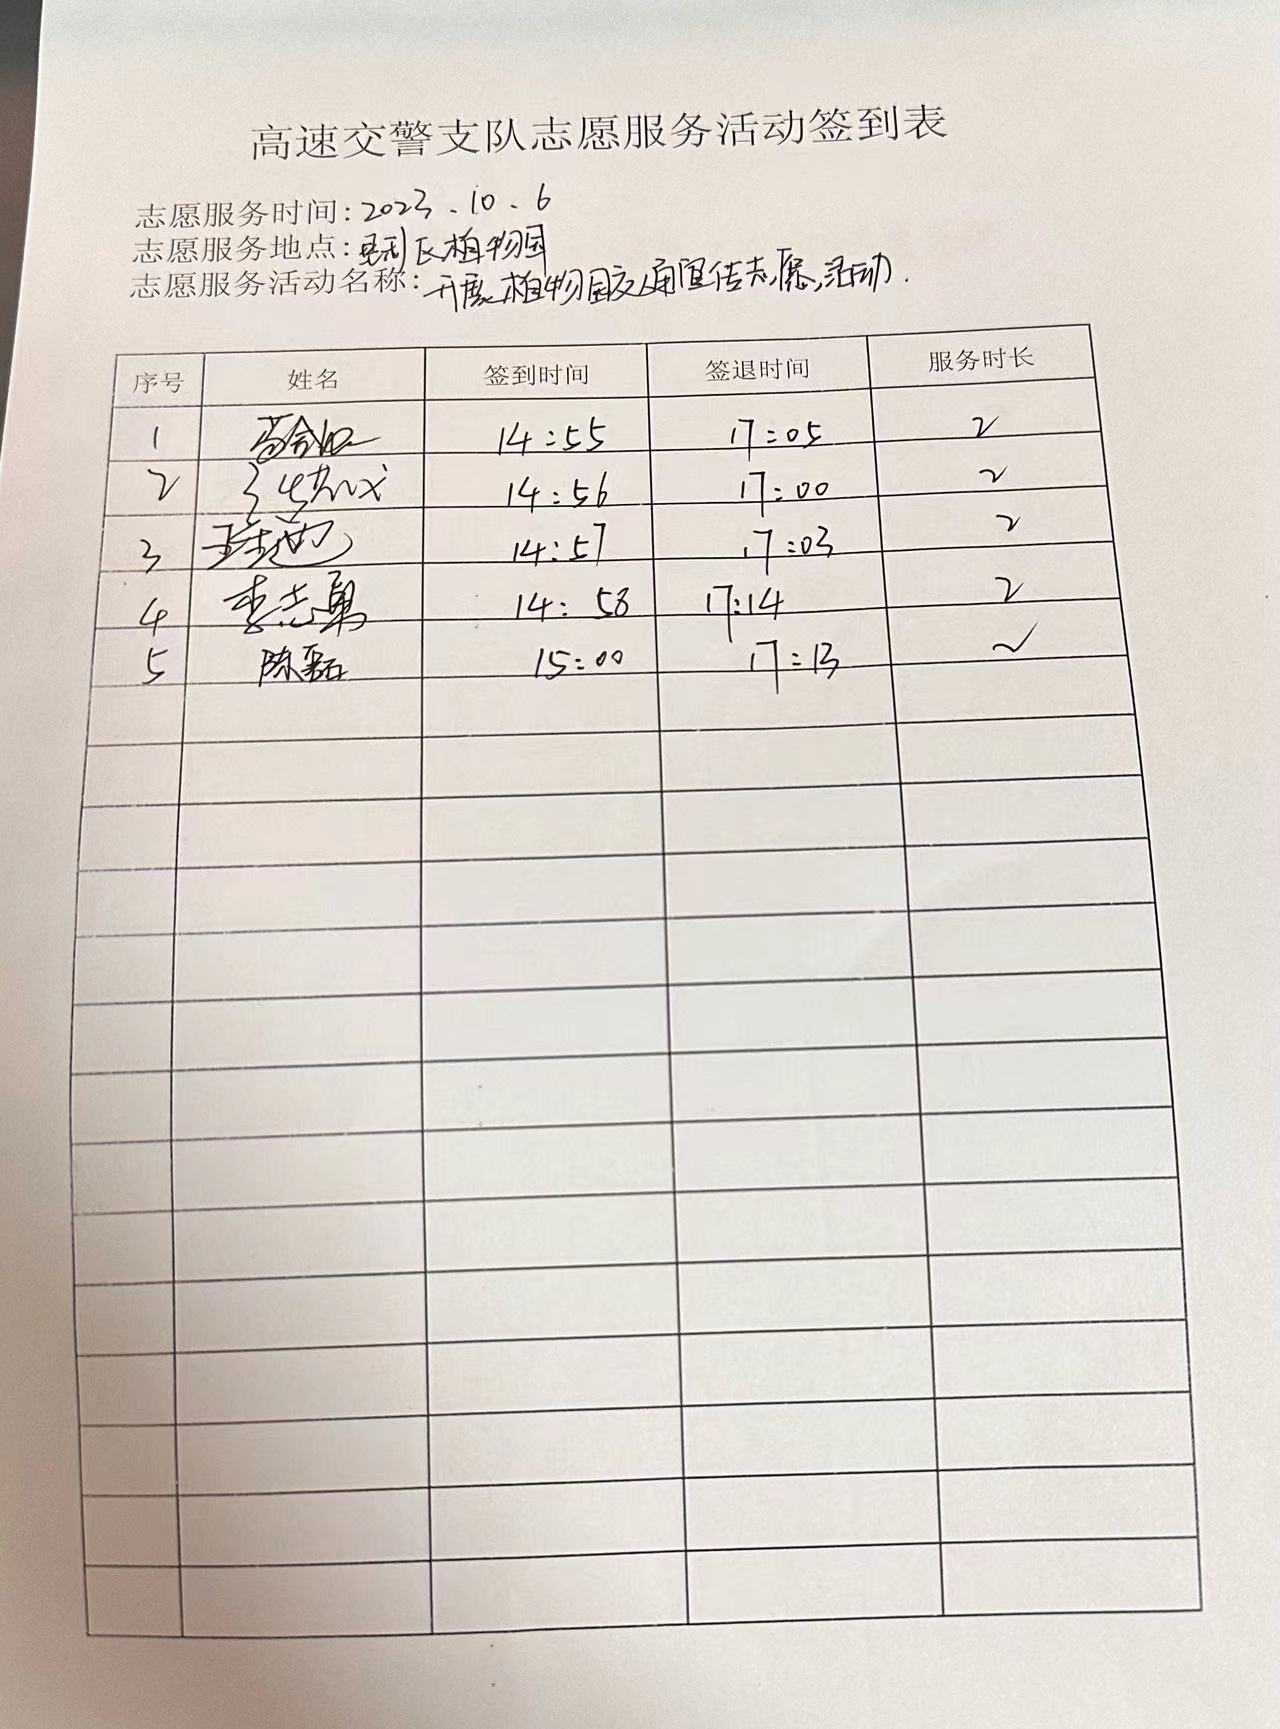 高速交警支队志愿服务活动签到表
志愿服务时间:2023.10.6
志愿服务地点:区植物园
志愿服务活动名称:开展植物园交通宣传志愿活动.
序号 姓名 签到时间 签退时间 服务时长
1 14:55 17:05 2
2 14:56 17:00 2
3 14:57 17:03 2
4 李志勇 14:58 17:14 2
5 陈磊 15:00 17:13 2